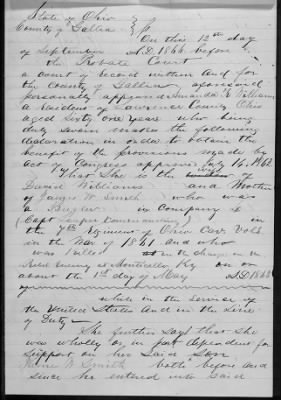 State of Ohio
County of Gallia } ss
On this 12th day
of September A.D. 1866 before
the Probate Court
a court of record within and for
the County of Gallia aforesaid
personally appeared Amanda Williams
a resident of Lawrence County Ohio
aged Sixty one years who being
duly sworn makes the following
declaration in order to obtain the
benefit of the provisions made by
act of Congress approved July 14, 1862
That She is the wife
of David Williams and Mother
of James W. Smith who was
a Bugler in Company
(Capt Commanding) in
the 7th Regiment of Ohio Cav. Vols
in the War of 1861 and who
was killed in the charge on
at Monticello Ky on or
about the 1st day of May A.D. 1863
while in the service of
the United States And in the Line
of Duty
She further Says that She
was wholly or in part dependent for
Support on her Said Son
W Smith both before and
since he entered into Said